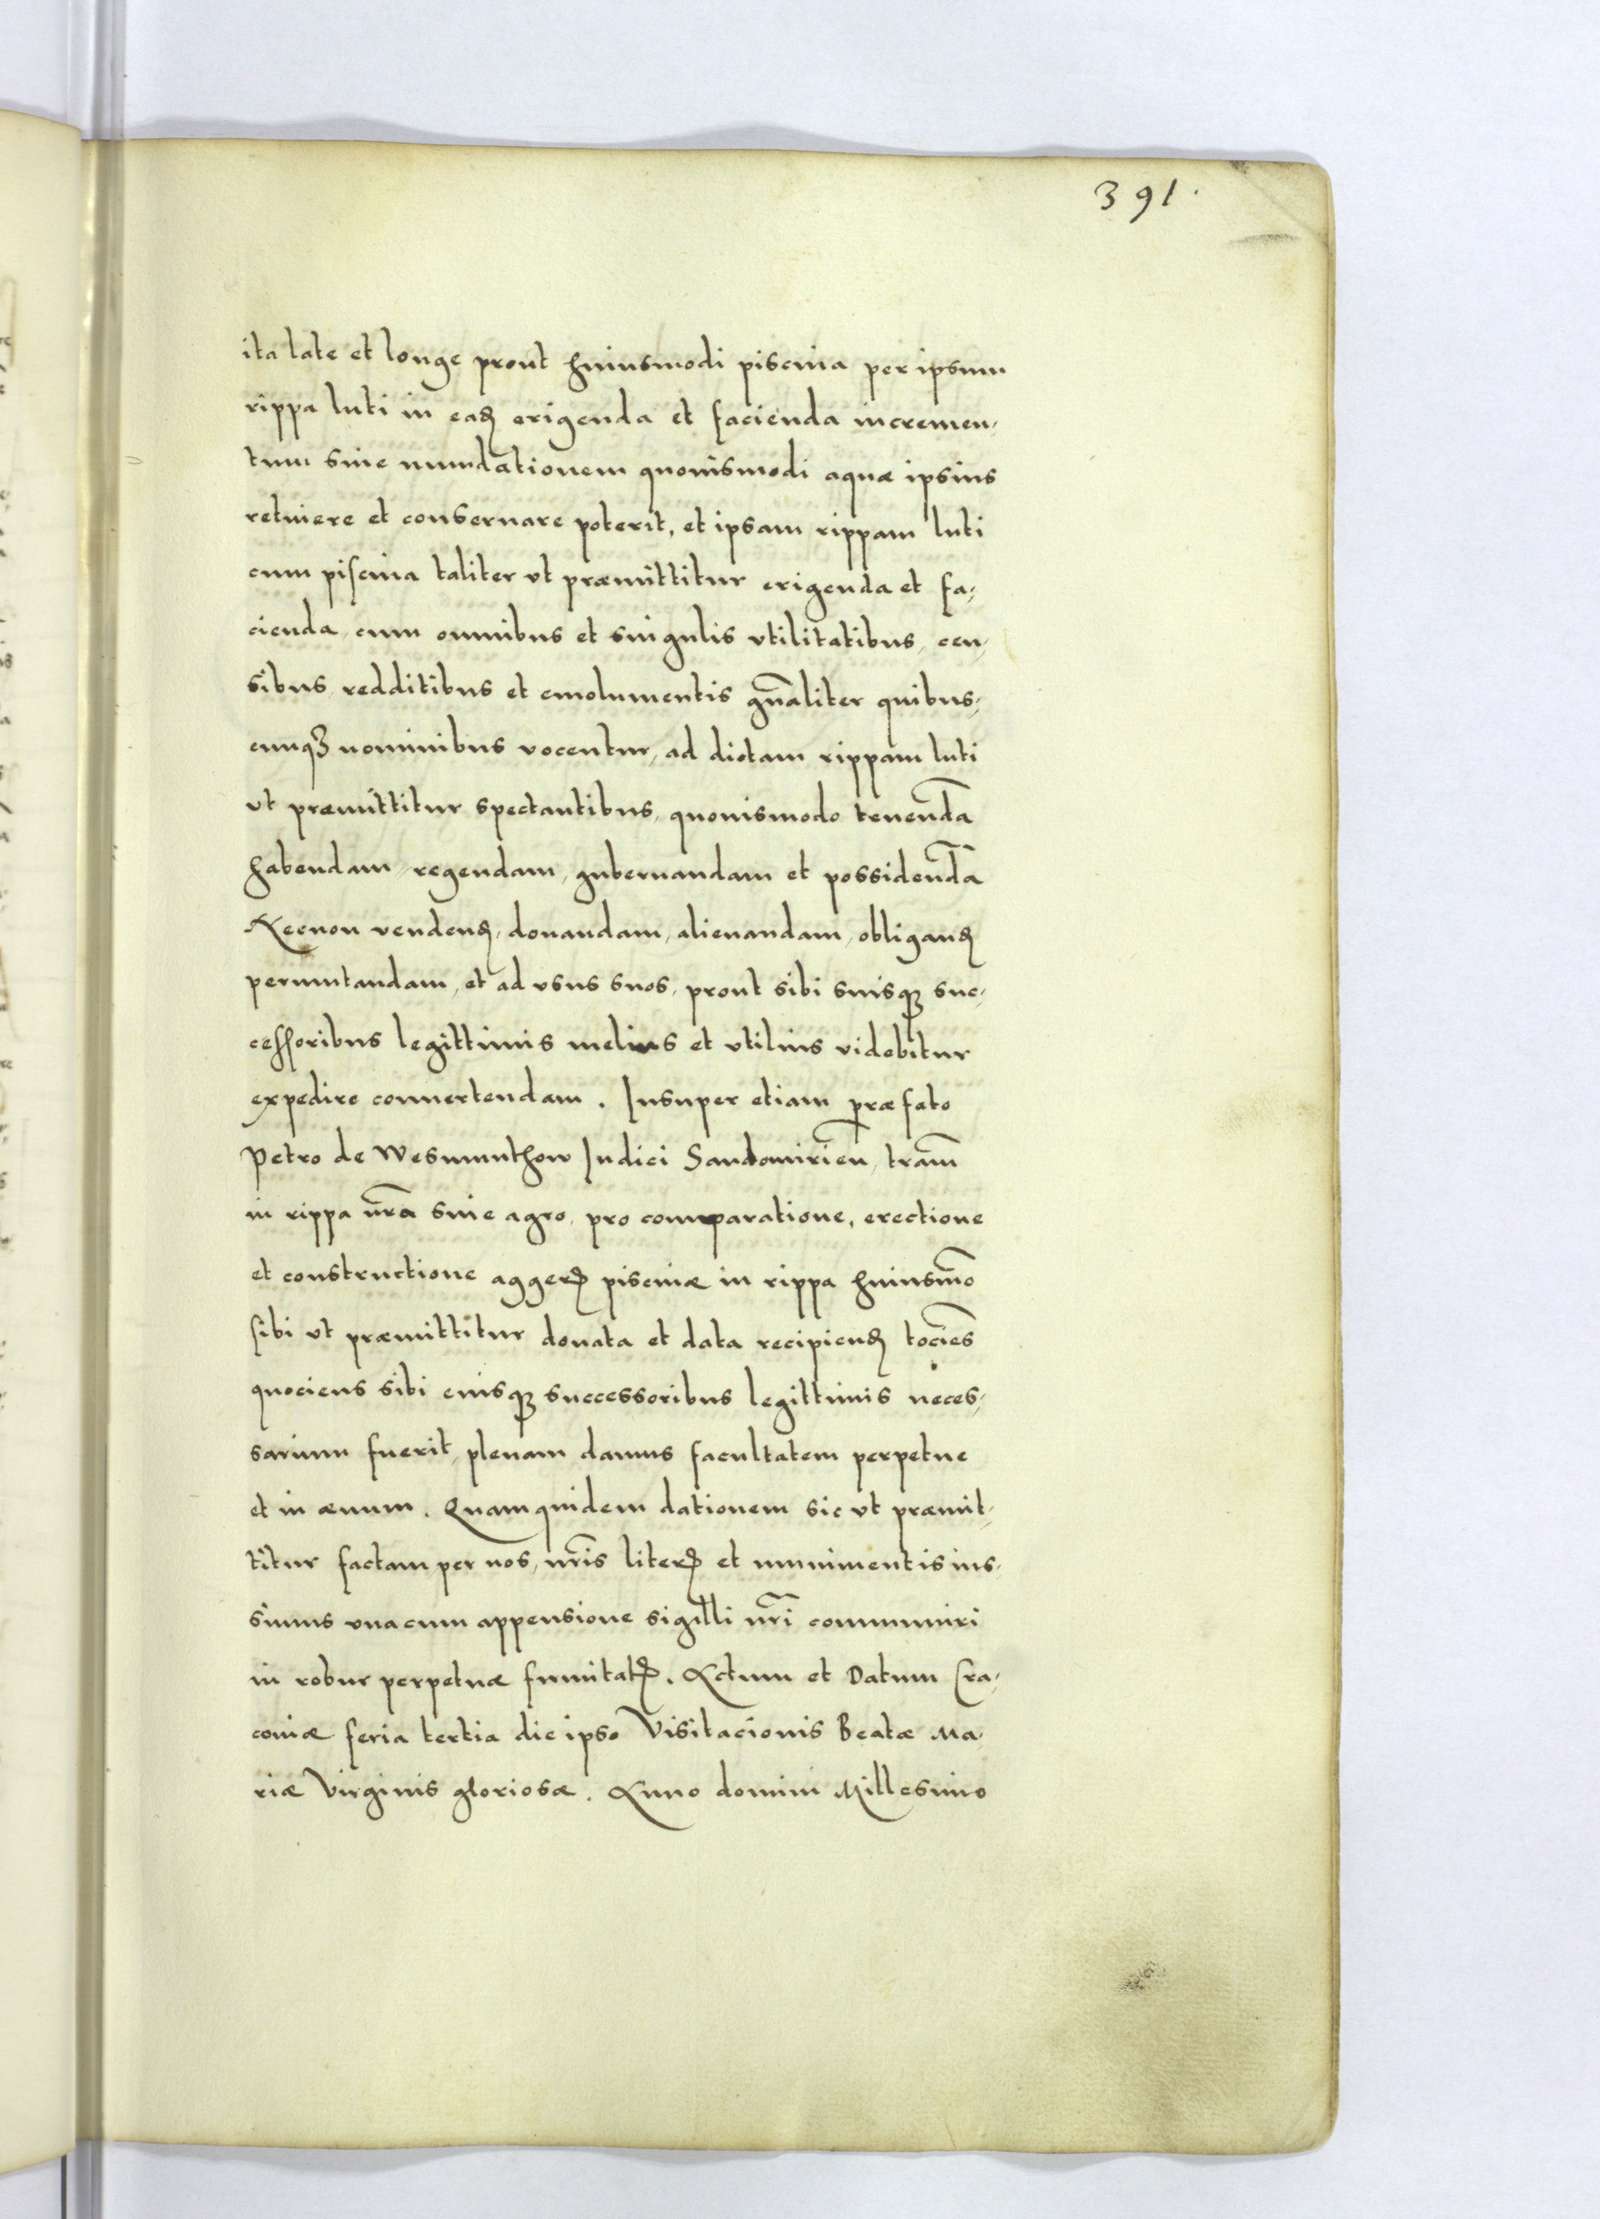 391.
ita late et longe prout huiusmodi piscina per ipsum
rippa luti in eaꝺ erigenda et facienda incremen,
tum siue inundationem quouismodi aquæ ipsius
retinere et conseruare poterit, et ipsam rippam luti
cum piscina taliter vt præmittitur erigenda et fa,
cienda, cum omnibus et singulis vtilitatibus, cen,
sibus, redditibus et emolumentis gñaliter quibus,
cunqꝫ nominibus vocentur, ad dictam rippam luti
vt præmittitur spectantibus, quouismodo tenendã
habendam, regendam, gubernandam et possidendã
Necnon vendenꝺ, donandam, alienandam, obliganꝺ
permutandam, et ad vsus suos, prout sibi suisqꝫ suc,
cessoribus legittimis melius et vtilius videbitur
expedire conuertendam. Insuper etiam præfato
Petro de Wesmunthow Iudici Sandomirieñ, trãm
in rippa nrã siue agro, pro comparatione, erectione
et constructione aggerꝭ piscinæ in rippa huiusmõ
sibi vt præmittitur donata et data recipienꝺ tociẽs
quociens sibi eiusqꝫ successoribus legittimis neces,
sarium fuerit, plenam damus facultatem perpetue
et in æuum. Quamquidem dationem sic vt præmit,
titur factam per nos, nr̃is literꝭ et munimentis ius,
simus vnacum appensione sigilli nr̃i communiri
in robur perpetuæ firmitatꝭ. Actum et Datum Cra,
couiæ feria tertia die ipso Visitacionis Beatæ Ma,
riæ Virginis gloriosæ. Anno domini Millesimo